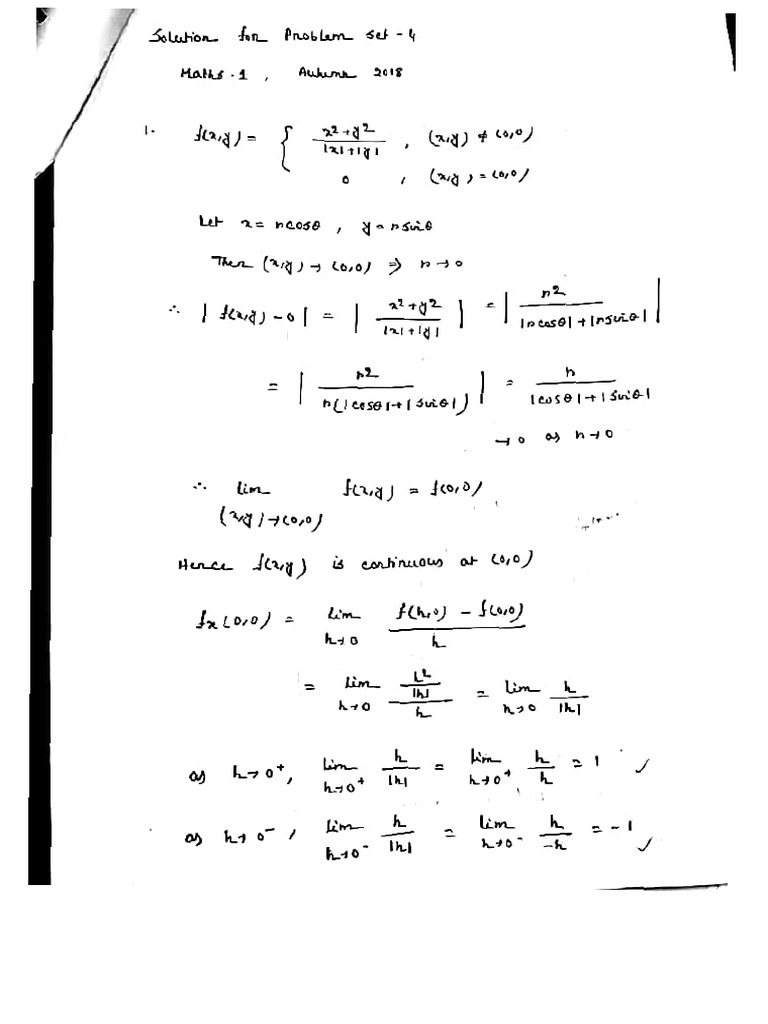 Solution for Problem set - 4
Maths - 1 , Autumn 2018
1. f(x,y) = { x²+y² / |x|+|y| , (x,y) ≠ (0,0)
0 , (x,y) = (0,0)
Let x = r cosθ , y = r sinθ
Then (x,y) → (0,0) ⇒ r → 0
∴ | f(x,y) - 0 | = | x²+y² / |x|+|y| | = | r² / |r cosθ|+|r sinθ| |
= | r² / r(|cosθ|+|sinθ|) | = r / |cosθ|+|sinθ|
→ 0 as r → 0
∴ lim f(x,y) = f(0,0)
(x,y) → (0,0)
Hence f(x,y) is continuous at (0,0)
fx(0,0) = lim h→0 f(h,0) - f(0,0) / h
= lim h→0 h²/|h| / h = lim h→0 h/|h|
as h → 0⁺, lim h→0⁺ h/|h| = lim h→0⁺ h/h = 1 ✓
as h → 0⁻, lim h→0⁻ h/|h| = lim h→0⁻ h/-h = -1 ✓